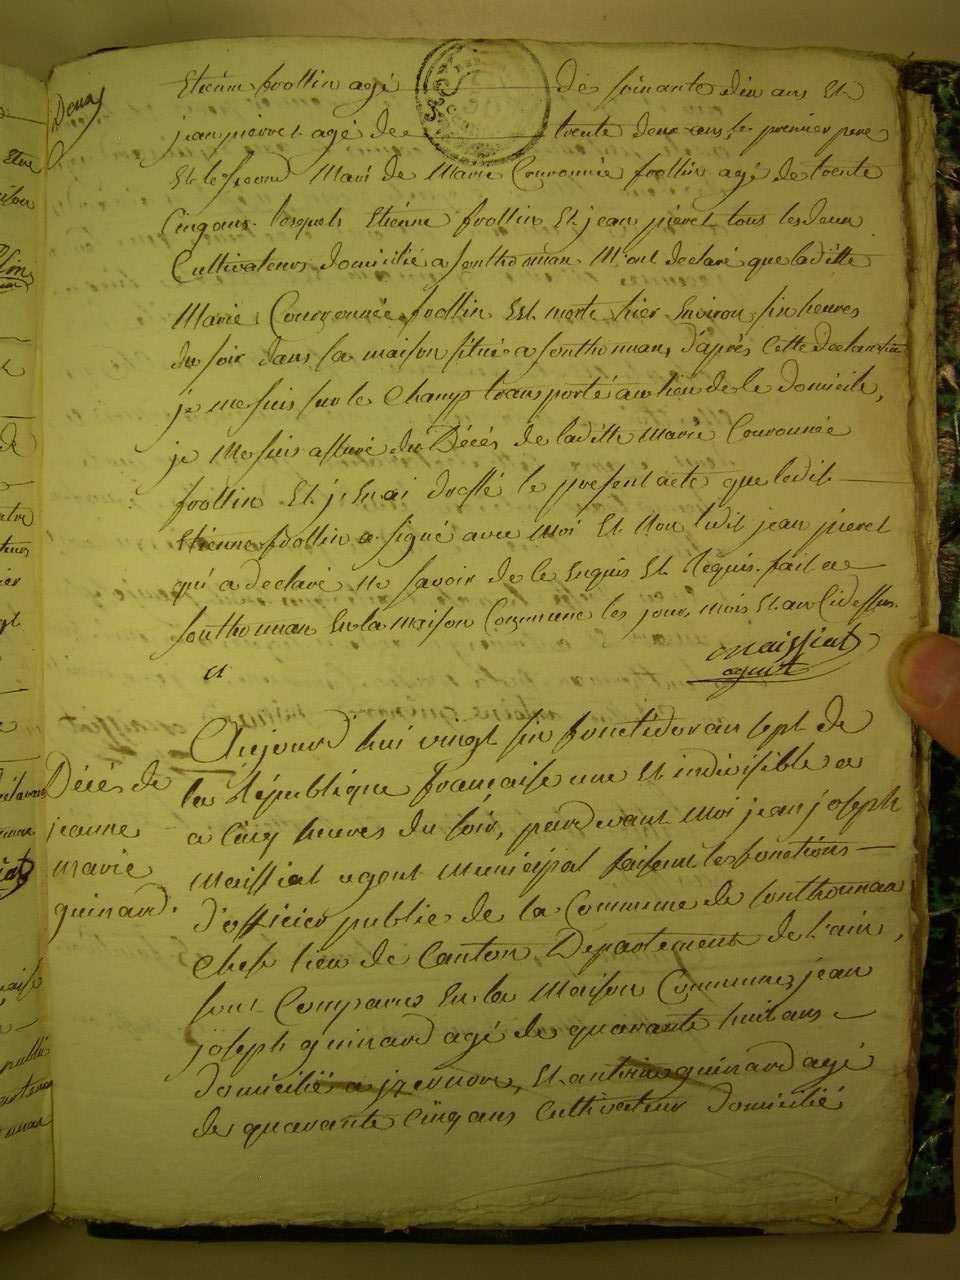 Deux
Etiénne frollin agé de soixante dix ans Et
jean pierret agé de trente deux ans le premier pere
Et le second Mari de Marie Couronnée frollin agé de trente
Cinq ans. lesquels Etiénne frollin Et jean pierret tous les deux
Cultivateurs domicilié a sonthonnax M'ont declaré que laditte
Marie Couronnée frollin Est morte hier Environ six heures
du soir dans sa maison située a sonthonnax, d'aprés Cette declaration
je me suis sur le Champs transporté au lieu de le domicile,
je Me suis assuré du Décés de laditte Marie Couronnée
frollin Et j'En ai dressé le present acte que ledit
Etienne frollin a signé avec Moi Et Non ledit jean pierret
qui a declaré Ne savoir de le Enquis Et Requis. fait a
sonthonnax En la maison Commune les jour, mois Et an Cidessus.
Maissiat
agent
Décés de
jeanne
marie
guinard.
Aujourd'hui vingt six fructidor an sept de
la République française une Et indivisible a
a Cinq heures du soir, pardevant Moi jean joseph
Maissiat agent Municipal faisant les fonctions
d'officier public de la Commune de sonthonnax
Chef lieu de Canton Département de L'ain,
sont Comparus En la Maison Commune, jean
joseph guinard agé de quarante huit ans
domicilié a jzernore, Et antoine guinard agé
de quarante Cinq ans Cultivateur domicilié